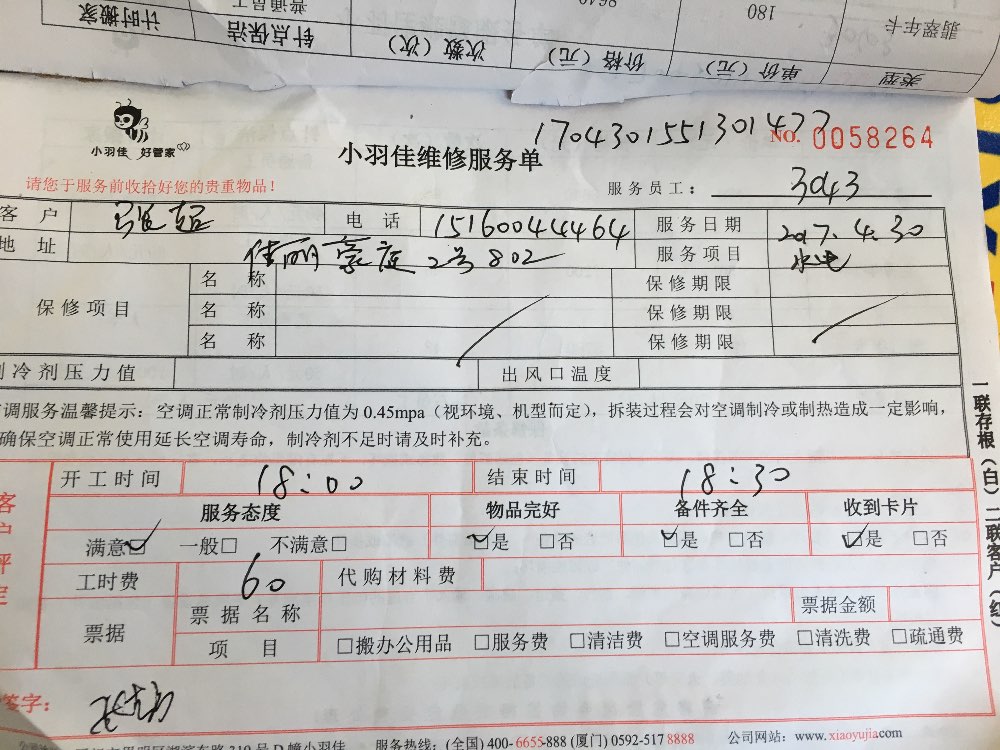 类型 单价（元） 价格（元） 次数（次） 针点保洁 计时搬家
翡翠年卡 180 8640 普通员工
小羽佳 好管家
小羽佳维修服务单
1704301551301477
NO. 0058264
请您于服务前收拾好您的贵重物品！
服务员工： 3043
客 户 张超 电 话 15160044464 服务日期 2017.4.30
地 址 佳丽豪庭2号802 服务项目 水电
保修项目 名 称 保修期限
名 称 保修期限
名 称 保修期限
冷剂压力值 出风口温度
调服务温馨提示：空调正常制冷剂压力值为 0.45mpa（视环境、机型而定），拆装过程会对空调制冷或制热造成一定影响，
确保空调正常使用延长空调寿命，制冷剂不足时请及时补充。
客户评定
开工时间 18:00 结束时间 18:30
服务态度 物品完好 备件齐全 收到卡片
满意☑ 一般□ 不满意□ ☑是 □否 ☑是 □否 ☑是 □否
工时费 60 代购材料费
票据 票据名称 票据金额
项 目 □搬办公用品 □服务费 □清洁费 □空调服务费 □清洗费 □疏通费
签字：
一联存根（白）二联客户（红）
湖滨东路 319 号 D 幢小羽佳 服务热线：(全国) 400-6655-888 (厦门) 0592-517 8888 公司网站：www.xiaoyujia.com